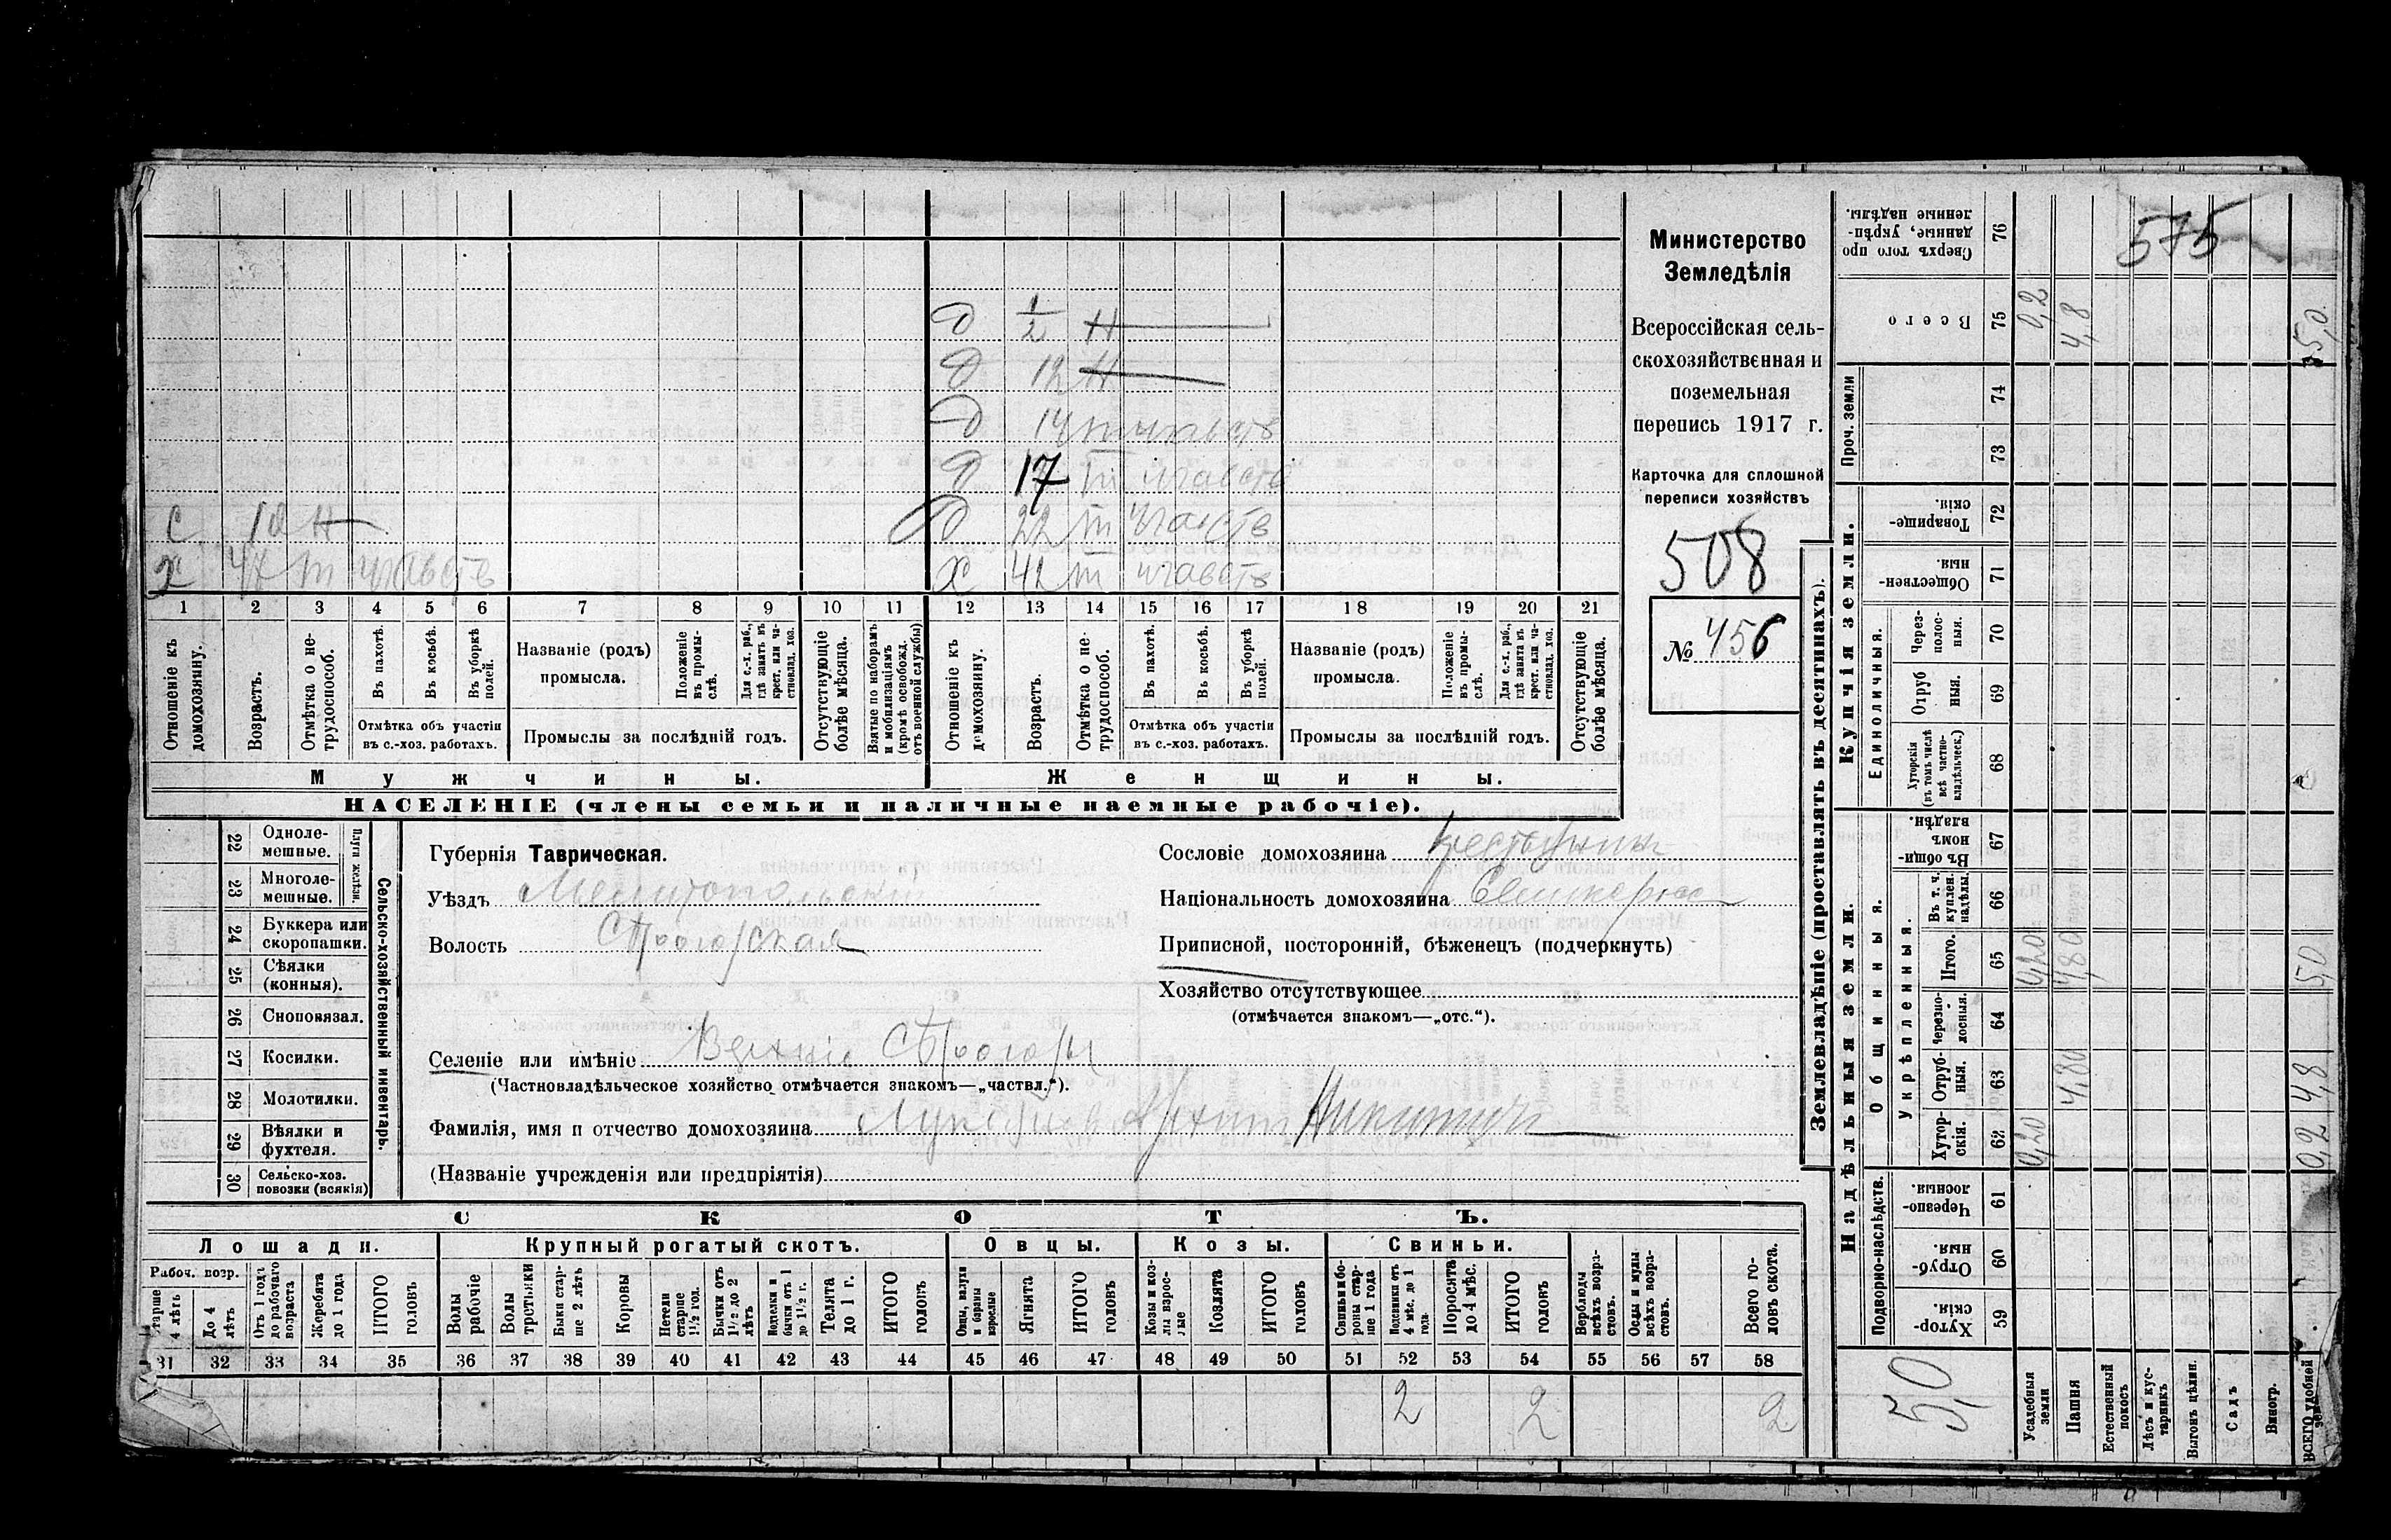 575
Министерство
Земледѣлія
Всероссійская сель-
скохозяйственная и
поземельная
перепись 1917 г.
Карточка для сплошной
переписи хозяйствъ
508
№ 456
д 1/2 Н
д 12 Н
д 14 т участв
д 17 т участв
с 10 Н д 22 т участв
х 47 т участв х 42 т участв
1 2 3 4 5 6 7 8 9 10 11 12 13 14 15 16 17 18 19 20 21
Отношеніе къ домохозяину.
Возрастъ.
Отмѣтка о не-трудоспособ.
Въ пахотѣ.
Въ косьбѣ.
Въ уборкѣ полей.
Отмѣтка объ участіи
въ с.-хоз. работахъ.
Названіе (родъ)
промысла.
Положеніе въ промы-слѣ.
Для с.-х. раб., гдѣ занятъ въ крест. или ча-стновлад. хоз.
Промыслы за послѣдній годъ.
Отсутствующіе болѣе мѣсяца.
Взятые по наборамъ и мобилизаціямъ (кромѣ освобожд. отъ военной службы)
Отношеніе къ домохозяину.
Возрастъ.
Отмѣтка о не-трудоспособ.
Въ пахотѣ.
Въ косьбѣ.
Въ уборкѣ полей.
Отмѣтка объ участіи
въ с.-хоз. работахъ.
Названіе (родъ)
промысла.
Положеніе въ промы-слѣ.
Для с.-х. раб., гдѣ занята въ крест. или ча-стновлад. хоз.
Промыслы за послѣдній годъ.
Отсутствующіе болѣе мѣсяца.
Мужчины. Женщины.
НАСЕЛЕНІЕ (члены семьи и наличные наемные рабочіе).
22 Одноле-мешные.
23 Многоле-мешные.
Плуги желѣзн.
24 Буккера или скоропашки.
25 Сѣялки (конныя).
26 Сноповязал.
27 Косилки.
28 Молотилки.
29 Вѣялки и фухтеля.
30 Сельско-хоз. повозки (всякія)
Сельско-хозяйственный инвентарь.
Губернія Таврическая.
Уѣздъ Мелитопольскій
Волость Сѣрогозская
Сословіе домохозяина крестьянин
Національность домохозяина
Приписной, посторонній, бѣженецъ (подчеркнуть)
Хозяйство отсутствующее
(отмѣчается знакомъ—„отс.“).
Селеніе или имѣніе Верхніе Сѣрогозы
(Частновладѣльческое хозяйство отмѣчается знакомъ—„частвл.“).
Фамилія, имя и отчество домохозяина Никитич
(Названіе учрежденія или предпріятія)
СКОТЪ.
Лошади. Крупный рогатый скотъ. Овцы. Козы. Свиньи.
Рабоч. возр.
Старше 4 лѣтъ
До 4 лѣтъ
Отъ 1 года до рабочаго возраста
Жеребята до 1 года
ИТОГО головъ
Волы рабочіе
Волы третьяки
Быки стар-ше 2 лѣтъ
Коровы
Нетели старше 1½ год.
Бычки отъ 1½ до 2 лѣтъ
Подтелки и бычки отъ 1 до 1½ г.
Телята до 1 г.
ИТОГО головъ
Овцы, валухи и бараны взрослые
Ягнята
ИТОГО головъ
Козы и коз-лы взрос-лые
Козлята
ИТОГО головъ
Свиньи и бо-ровы стар-ше 1 года
Подсвинки отъ 4 мѣс. до 1 года
Поросята до 4 мѣс.
ИТОГО головъ
Верблюды всѣхъ возра-стовъ.
Ослы и мулы всѣхъ возра-стовъ.
Всего го-ловъ скота.
31 32 33 34 35 36 37 38 39 40 41 42 43 44 45 46 47 48 49 50 51 52 53 54 55 56 57 58
2 2 2
Землевладѣніе (проставлять въ десятинахъ).
Надѣльныя земли. Купчія земли. Проч. земли
Подворно-наслѣдств.
Общинныя.
Укрѣпленныя.
Единоличныя.
Хутор-скія. 59
Отруб-ныя. 60
Черезпо-лосныя. 61
Хутор-скія. 62 0,20 0,2
Отруб-ныя. 63 4,80 4,8
Черезпо-лосныя. 64
Итого. 65 0,20 4,80 5,0
Въ т. ч. куплен. надѣлы. 66
Въ общин-номъ владѣн. 67
Хуторскія (въ томъ числѣ всѣ частно-владѣльческ.) 68
Отруб ныя. 69
Через-полос-ныя. 70
Обществен-ныя. 71
Товарище-скія. 72
73
74
Всего 75 0,2 4,8 5,0
Сверхъ того про данные, укрѣп-ленные надѣлы. 76
5,0
Усадебныя земли
Пашня
Естественный покосъ
Лѣсъ и кус-тарникъ
Выгонъ цѣлин.
Садъ
Виногр.
ВСЕГО удобной земли